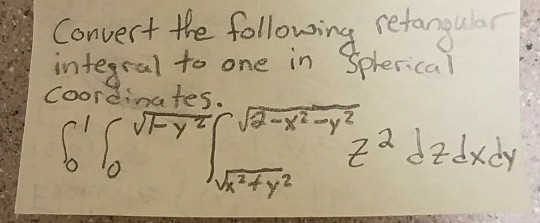 Convert the following retangular
integral to one in Spherical
Coordinates.
∫₀¹ ∫₀^√(1-y²) ∫_√(x²+y²)^√(2-x²-y²) z² dzdxdy